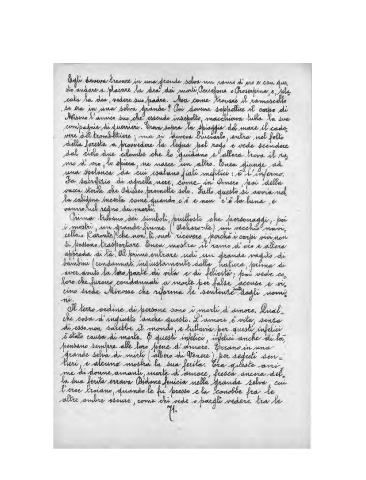 Egli doveva trovare in una grande selva un ramo di oro e con que,
sto andare a placare la dea dei morti, Persefone o Proserpina, e, pla,
cata la dea, vedere suo padre. Ma come trovare il ramoscello
se era in una selva grande? Poi doveva seppellire il corpo di
Miseno l'amico suo che essendo insepolto, macchiava tutta la sua
compagnia di guerrieri. Era sopra la spiaggia del mare il cada,
vere del trombettiere, ma si doveva bruciarlo, entra nel folto
della foresta a provvedere la legna pel rogo e vede scendere
dal cielo due colombe che lo guidano e allora trova il ra,
mo di oro, lo spicca, ne nasce un altro. Enea giunge ad
una voragine da cui esalano fiati mefitici: è l'inferno.
Fa sacrificio di agnelle nere, come in Omero poi della
vacca sterile che Odisseo promette solo. Fatto questo si avvia nel,
la caligine incerta come quando c'è e non c'è la luna, e
vanno nel regno dei morti.
Prima trovano dei simboli piuttosto che personaggi, poi
i mostri, un grande fiume l'Acheronte, un vecchio navi,
cella, Caronte, che non li vuol ricevere, perchè i corpi vivi non
si possono trasportare. Enea mostra il ramo di oro e allora
approda di là. Al primo entrare udì un grande vagito di
bambini (condannati ingiustamente dalla natura, prima di
aver avuto la loro parte di vita e di felicità; poi vede co,
loro che furono condannati a morte per false accuse e vi,
cino siede Minosse che riforma le sentenze degli uomi,
ni.
Il terzo ordine di persone sono i morti d'amore. Qual,
che cosa d'ingiusto anche questo. L'amore è vita, senza
di esso non sarebbe il mondo, e tuttavia per questi infelici
è stato causa di morte. E questi infelici, infelici anche di là,
pensano sempre alle loro pene d'amore. Erano in una
grande selva di mirti (albero di Venere) per segreti sen,
tieri, e alcuno mostra la sua ferita. Tra queste ani,
me di donne amanti, morte d'amore, fresca ancora del,
la sua ferita errava Didone fenicia nella grande selva, cui
l'eroe troiano, quando le fu presso e la conobbe fra le
altre ombre oscure, come chi vede o pargli vedere tra le
71.